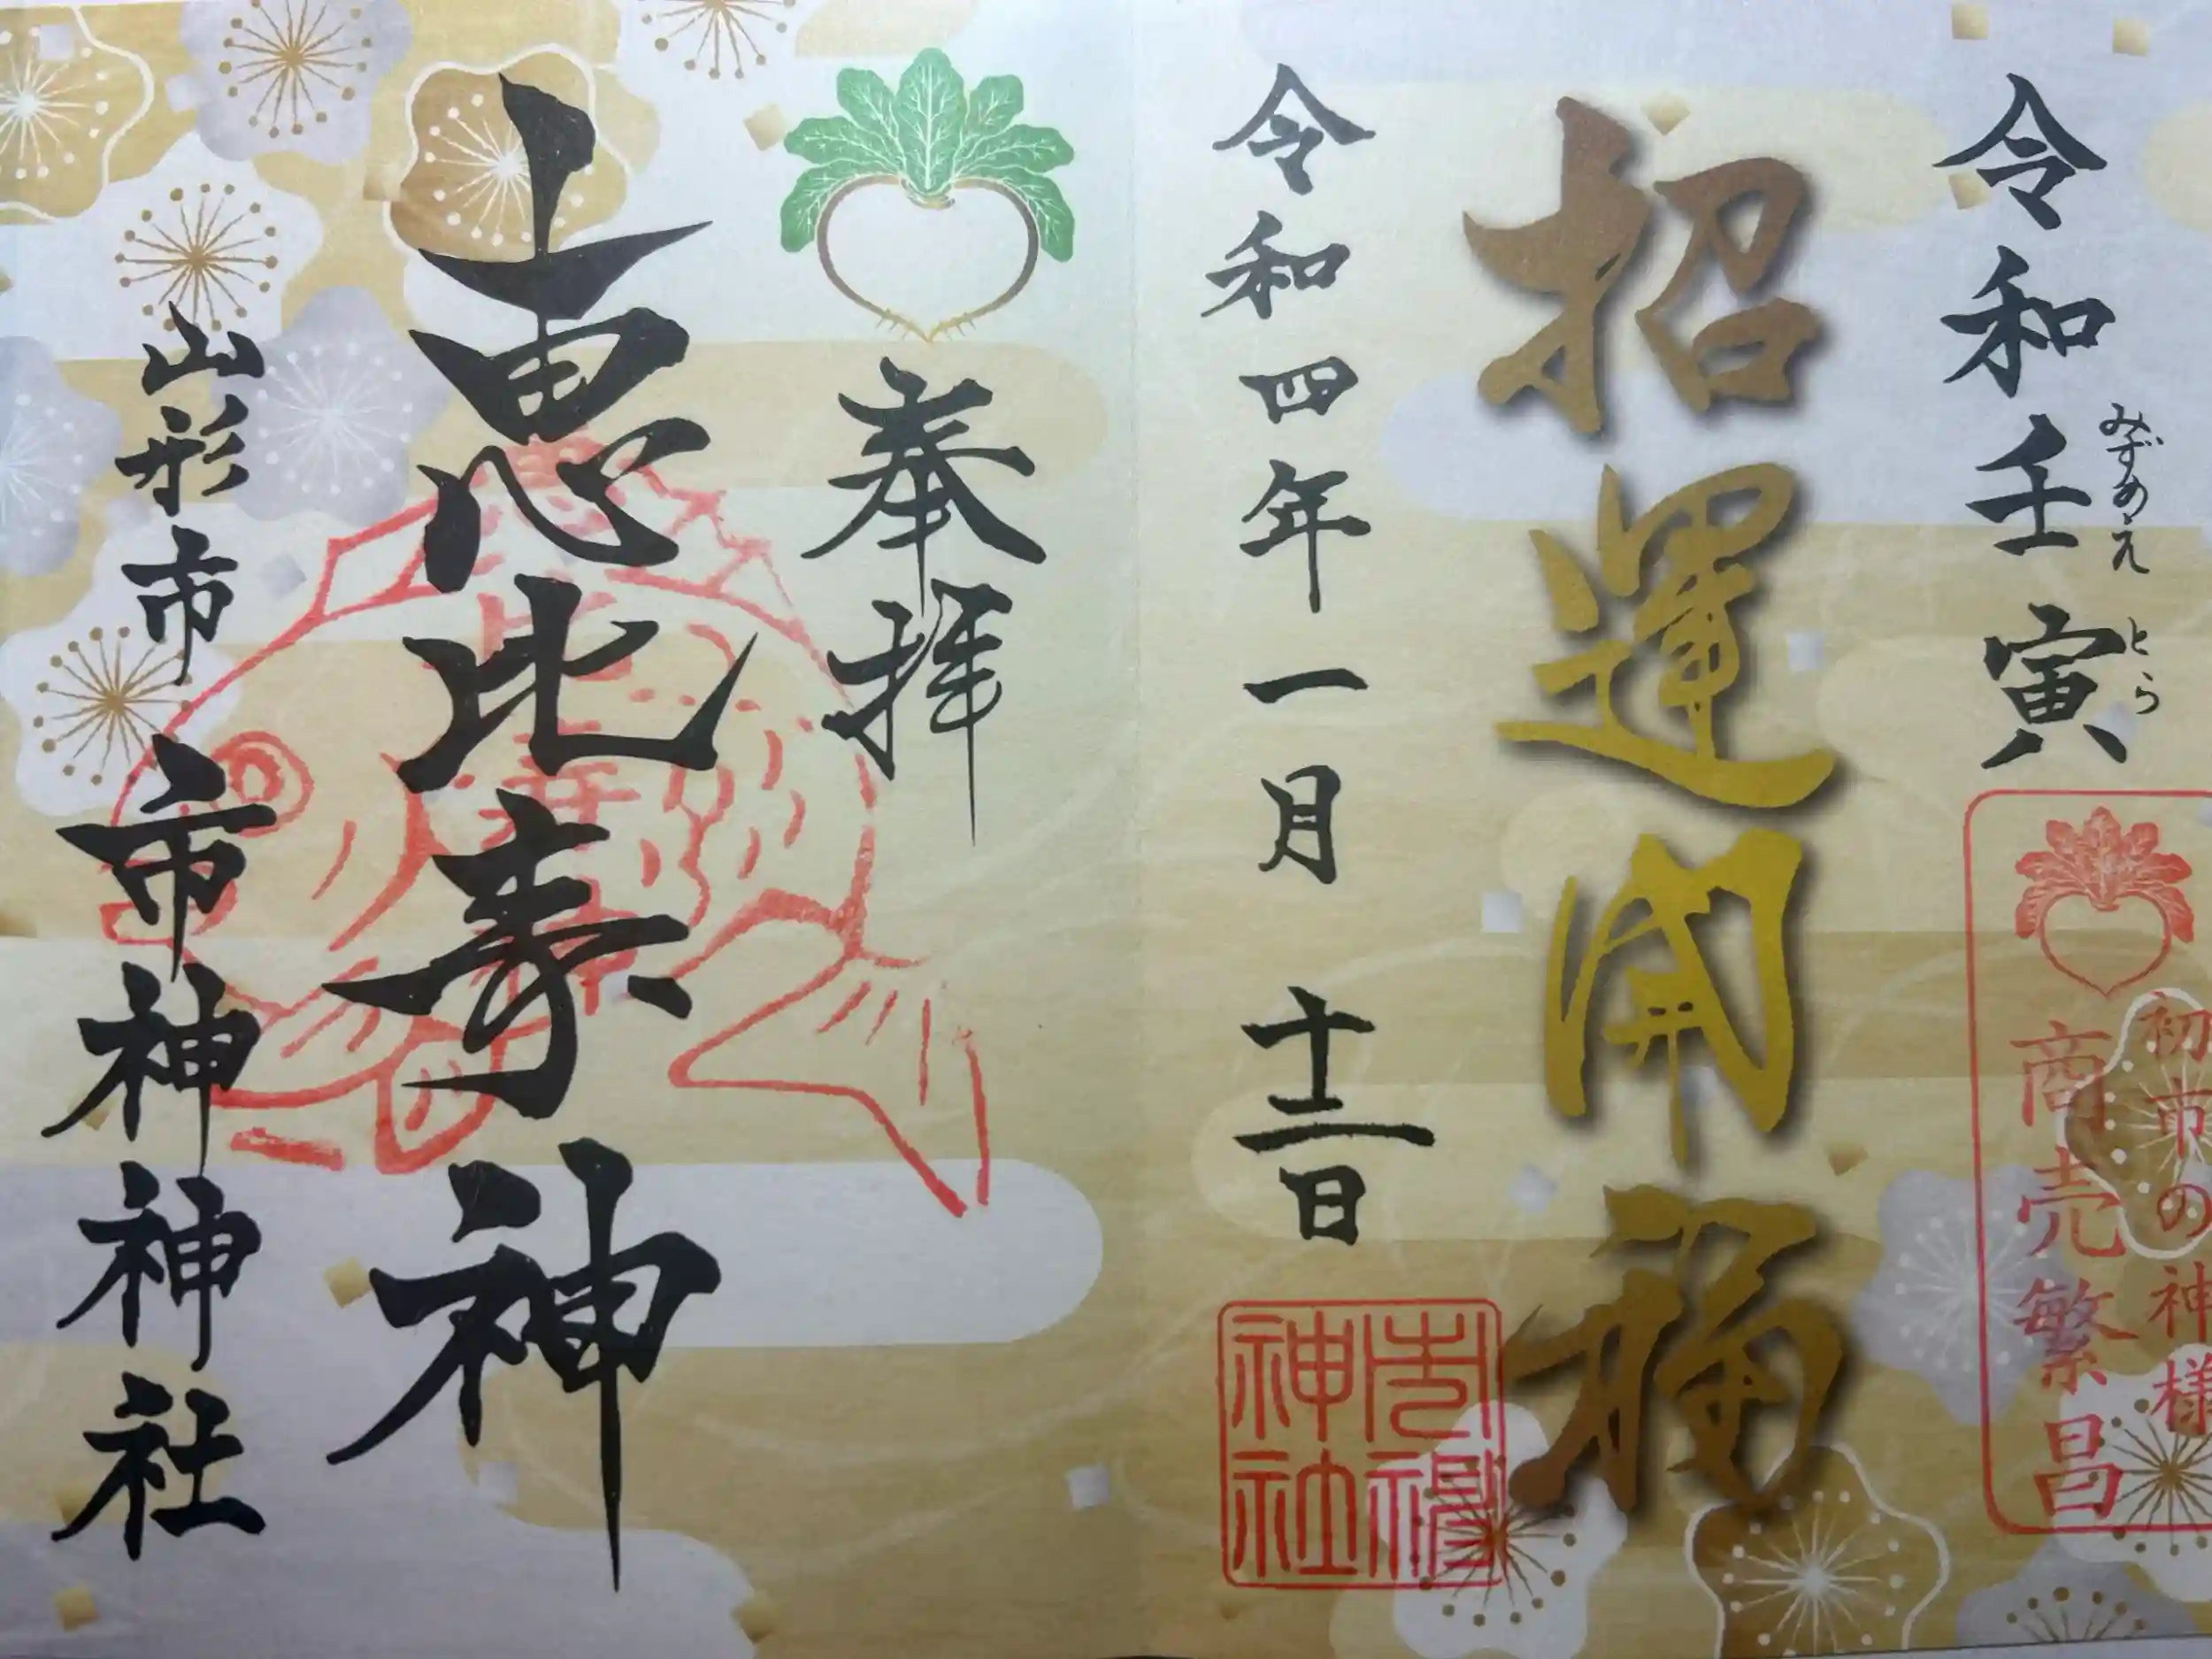 令和壬寅
みずのえ とら
初市の神様
商売繁昌
招運開福
令和四年一月十二日
市神神社
奉拝
恵比寿神
山形市 市神神社